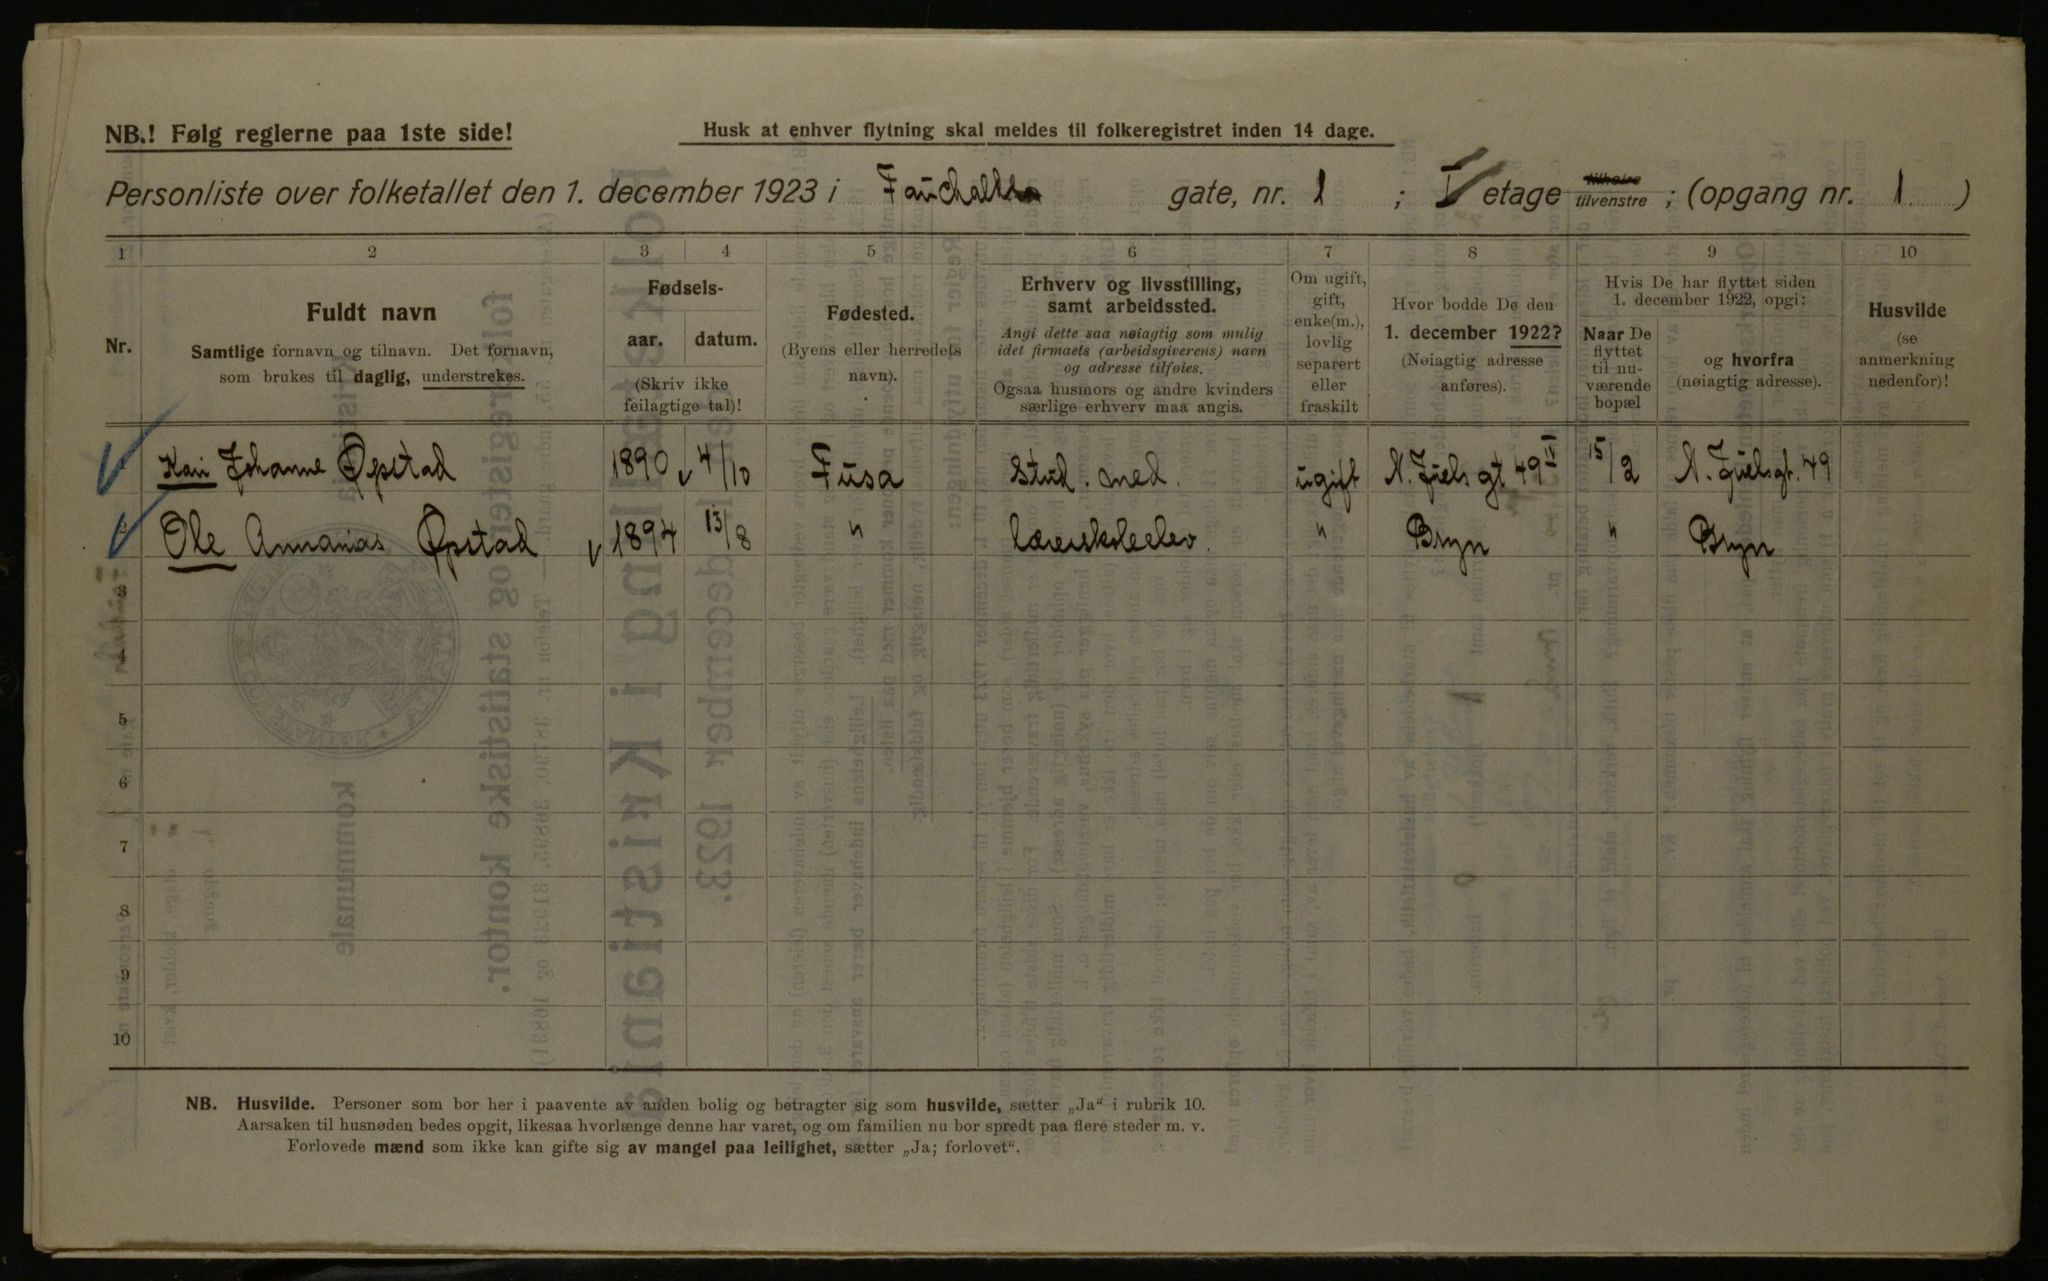 NB.! Følg reglerne paa 1ste side!
Husk at enhver flytning skal meldes til folkeregistret inden 14 dage.
Personliste over folketallet den 1. december 1923 i Fauchalds gate, nr. 1 ; etage tilhøire tilvenstre ; (opgang nr. 1. )
1 2 3 4 5 6 7 8 9 10
Nr.
Fuldt navn
Samtlige fornavn og tilnavn. Det fornavn,
som brukes til daglig, understrekes.
Fødsels-
aar. datum.
(Skriv ikke
feilagtige tal)!
Fødested.
(Byens eller herredets
navn).
Erhverv og livsstilling,
samt arbeidssted.
Angi dette saa nøiagtig som mulig
idet firmaets (arbeidsgiverens) navn
og adresse tilføies.
Ogsaa husmors og andre kvinders
særlige erhverv maa angis.
Om ugift,
gift,
enke(m.),
lovlig
separert
eller
fraskilt
Hvor bodde De den
1. december 1922?
(Nøiagtig adresse
anføres).
Hvis De har flyttet siden
1. december 1922, opgi:
Naar De
flyttet
til nu-
værende
bopæl
og hvorfra
(nøiagtig adresse).
Husvilde
(se
anmerkning
nedenfor)!
Kari Johanne Øpstad 1890 4/10 Fusa Stud. med. ugift N. Juels gt 49 IV 15/2 N. Juelsgt. 49
2 Ole Annanias Øpstad 1894 13/8 " Lærerskoleelev. " Bryn " Bryn
3
4
5
6
7
8
9
10
NB. Husvilde. Personer som bor her i paavente av anden bolig og betragter sig som husvilde, sætter „Ja“ i rubrik 10.
Aarsaken til husnøden bedes opgit, likesaa hvorlænge denne har varet, og om familien nu bor spredt paa flere steder m. v.
Forlovede mænd som ikke kan gifte sig av mangel paa leilighet, sætter „Ja; forlovet“.